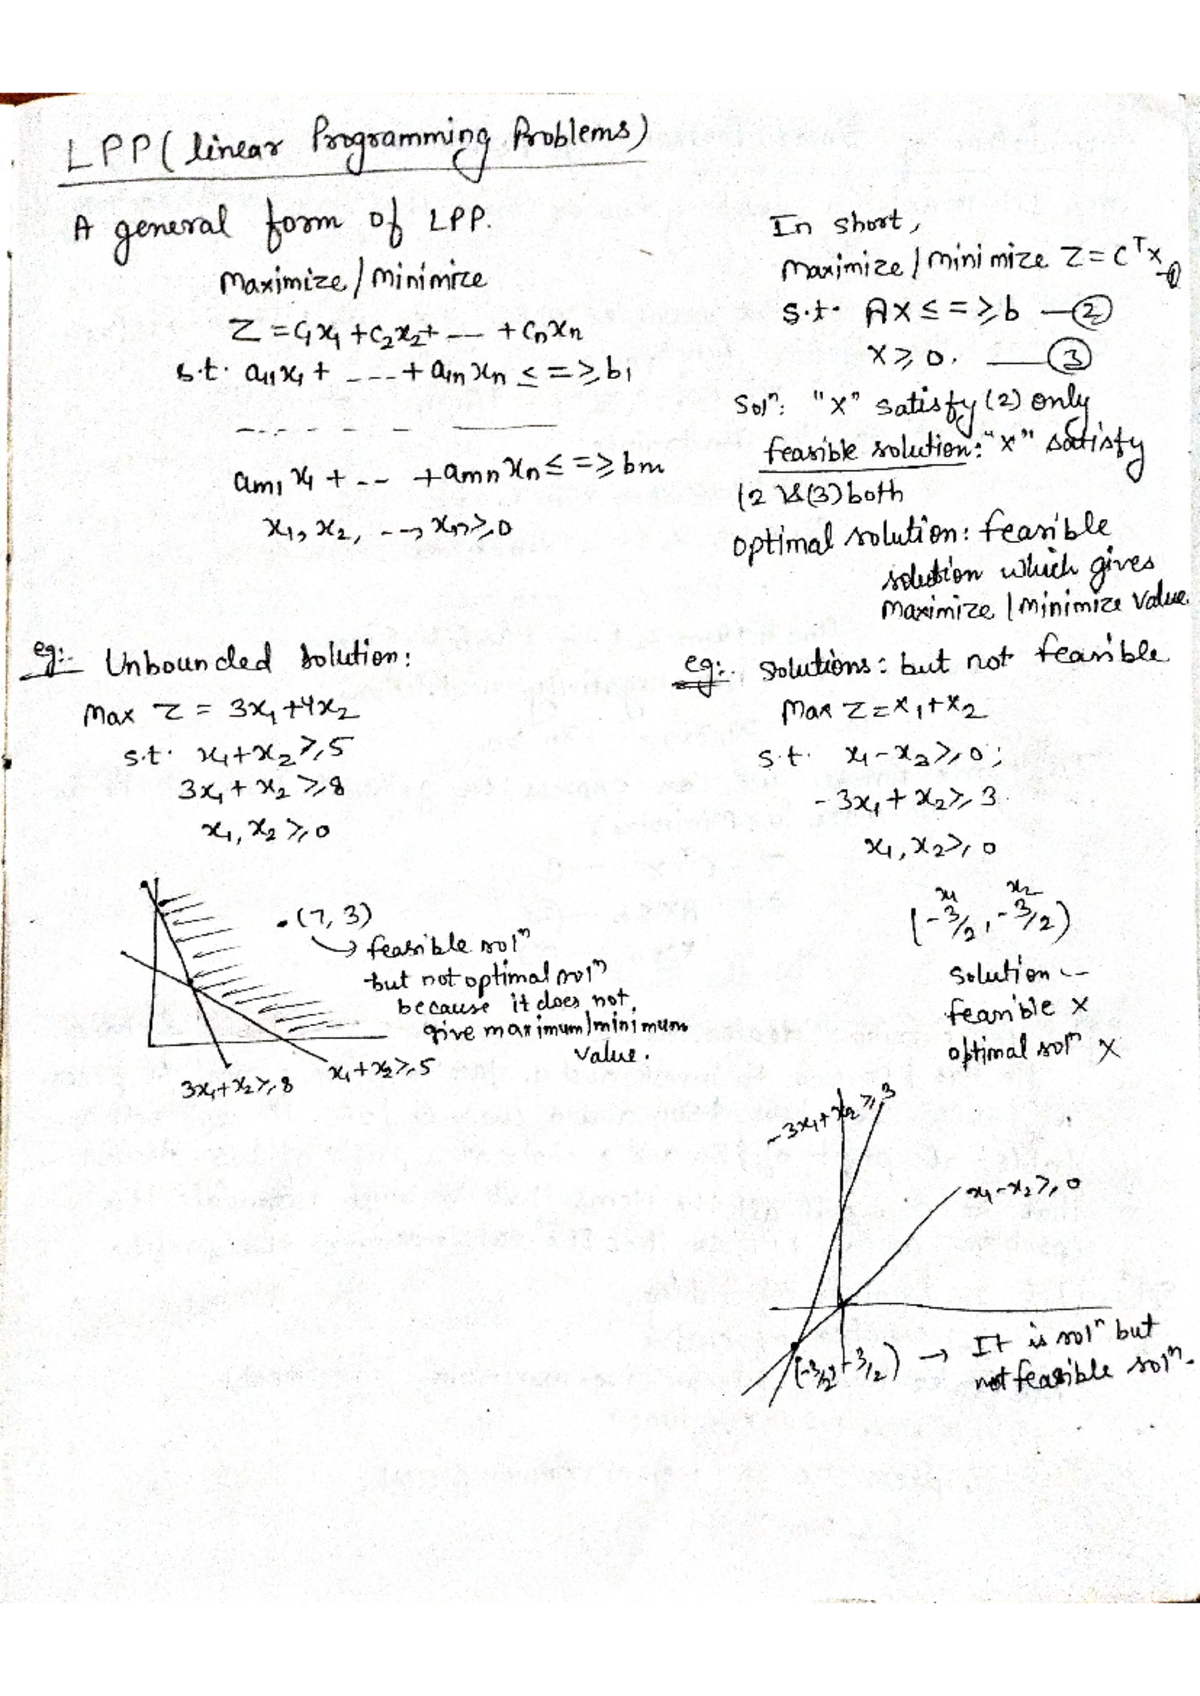 LPP (linear Programming Problems)
A general form of LPP.
Maximize / Minimize
Z = C₁x₁ + C₂x₂ + --- + Cₙxₙ
s.t. a₁₁x₁ + ---- + a₁ₙxₙ ≤ = ≥ b₁
aₘ₁x₁ + -- + aₘₙxₙ ≤ = ≥ bₘ
x₁, x₂, --, xₙ ≥ 0
In short,
Maximize / minimize Z = Cᵀx —①
s.t. AX ≤ = ≥ b —②
X ≥ 0. —③
Solⁿ: "X" satisfy (2) only
feasible solution: "X" satisfy
(2) & (3) both
optimal solution: feasible
solution which gives
Maximize / Minimize value.
eg:- Unbounded solution:
Max Z = 3x₁ + 4x₂
s.t. x₁ + x₂ ≥ 5
3x₁ + x₂ ≥ 8
x₁, x₂ ≥ 0
.(7, 3)
→ feasible solⁿ
but not optimal solⁿ
because it does not
give maximum/minimum
value.
3x₁ + x₂ ≥ 8
x₁ + x₂ ≥ 5
eg:- Solutions: but not feasible
Max Z = x₁ + x₂
s.t. x₁ - x₂ ≥ 0;
- 3x₁ + x₂ ≥ 3
x₁, x₂ ≥ 0
x₁ x₂
(-3/2, -3/2)
Solution ✓
feasible X
optimal solⁿ X
-3x₁ + x₂ ≥ 3
x₁ - x₂ ≥ 0
→ It is solⁿ but
not feasible solⁿ.